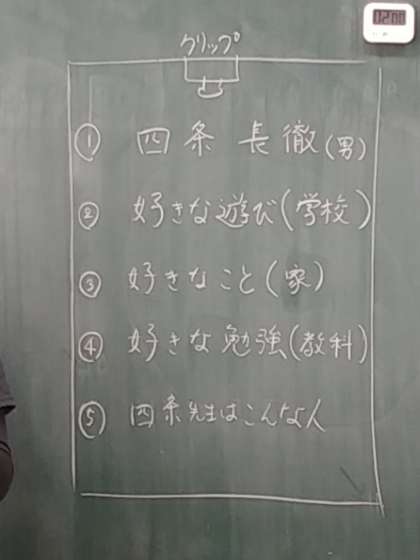 12:00
クリップ
① 四条 長徹(男)
② 好きな遊び(学校)
③ 好きなこと(家)
④ 好きな勉強(教科)
⑤ 四条先生はこんな人